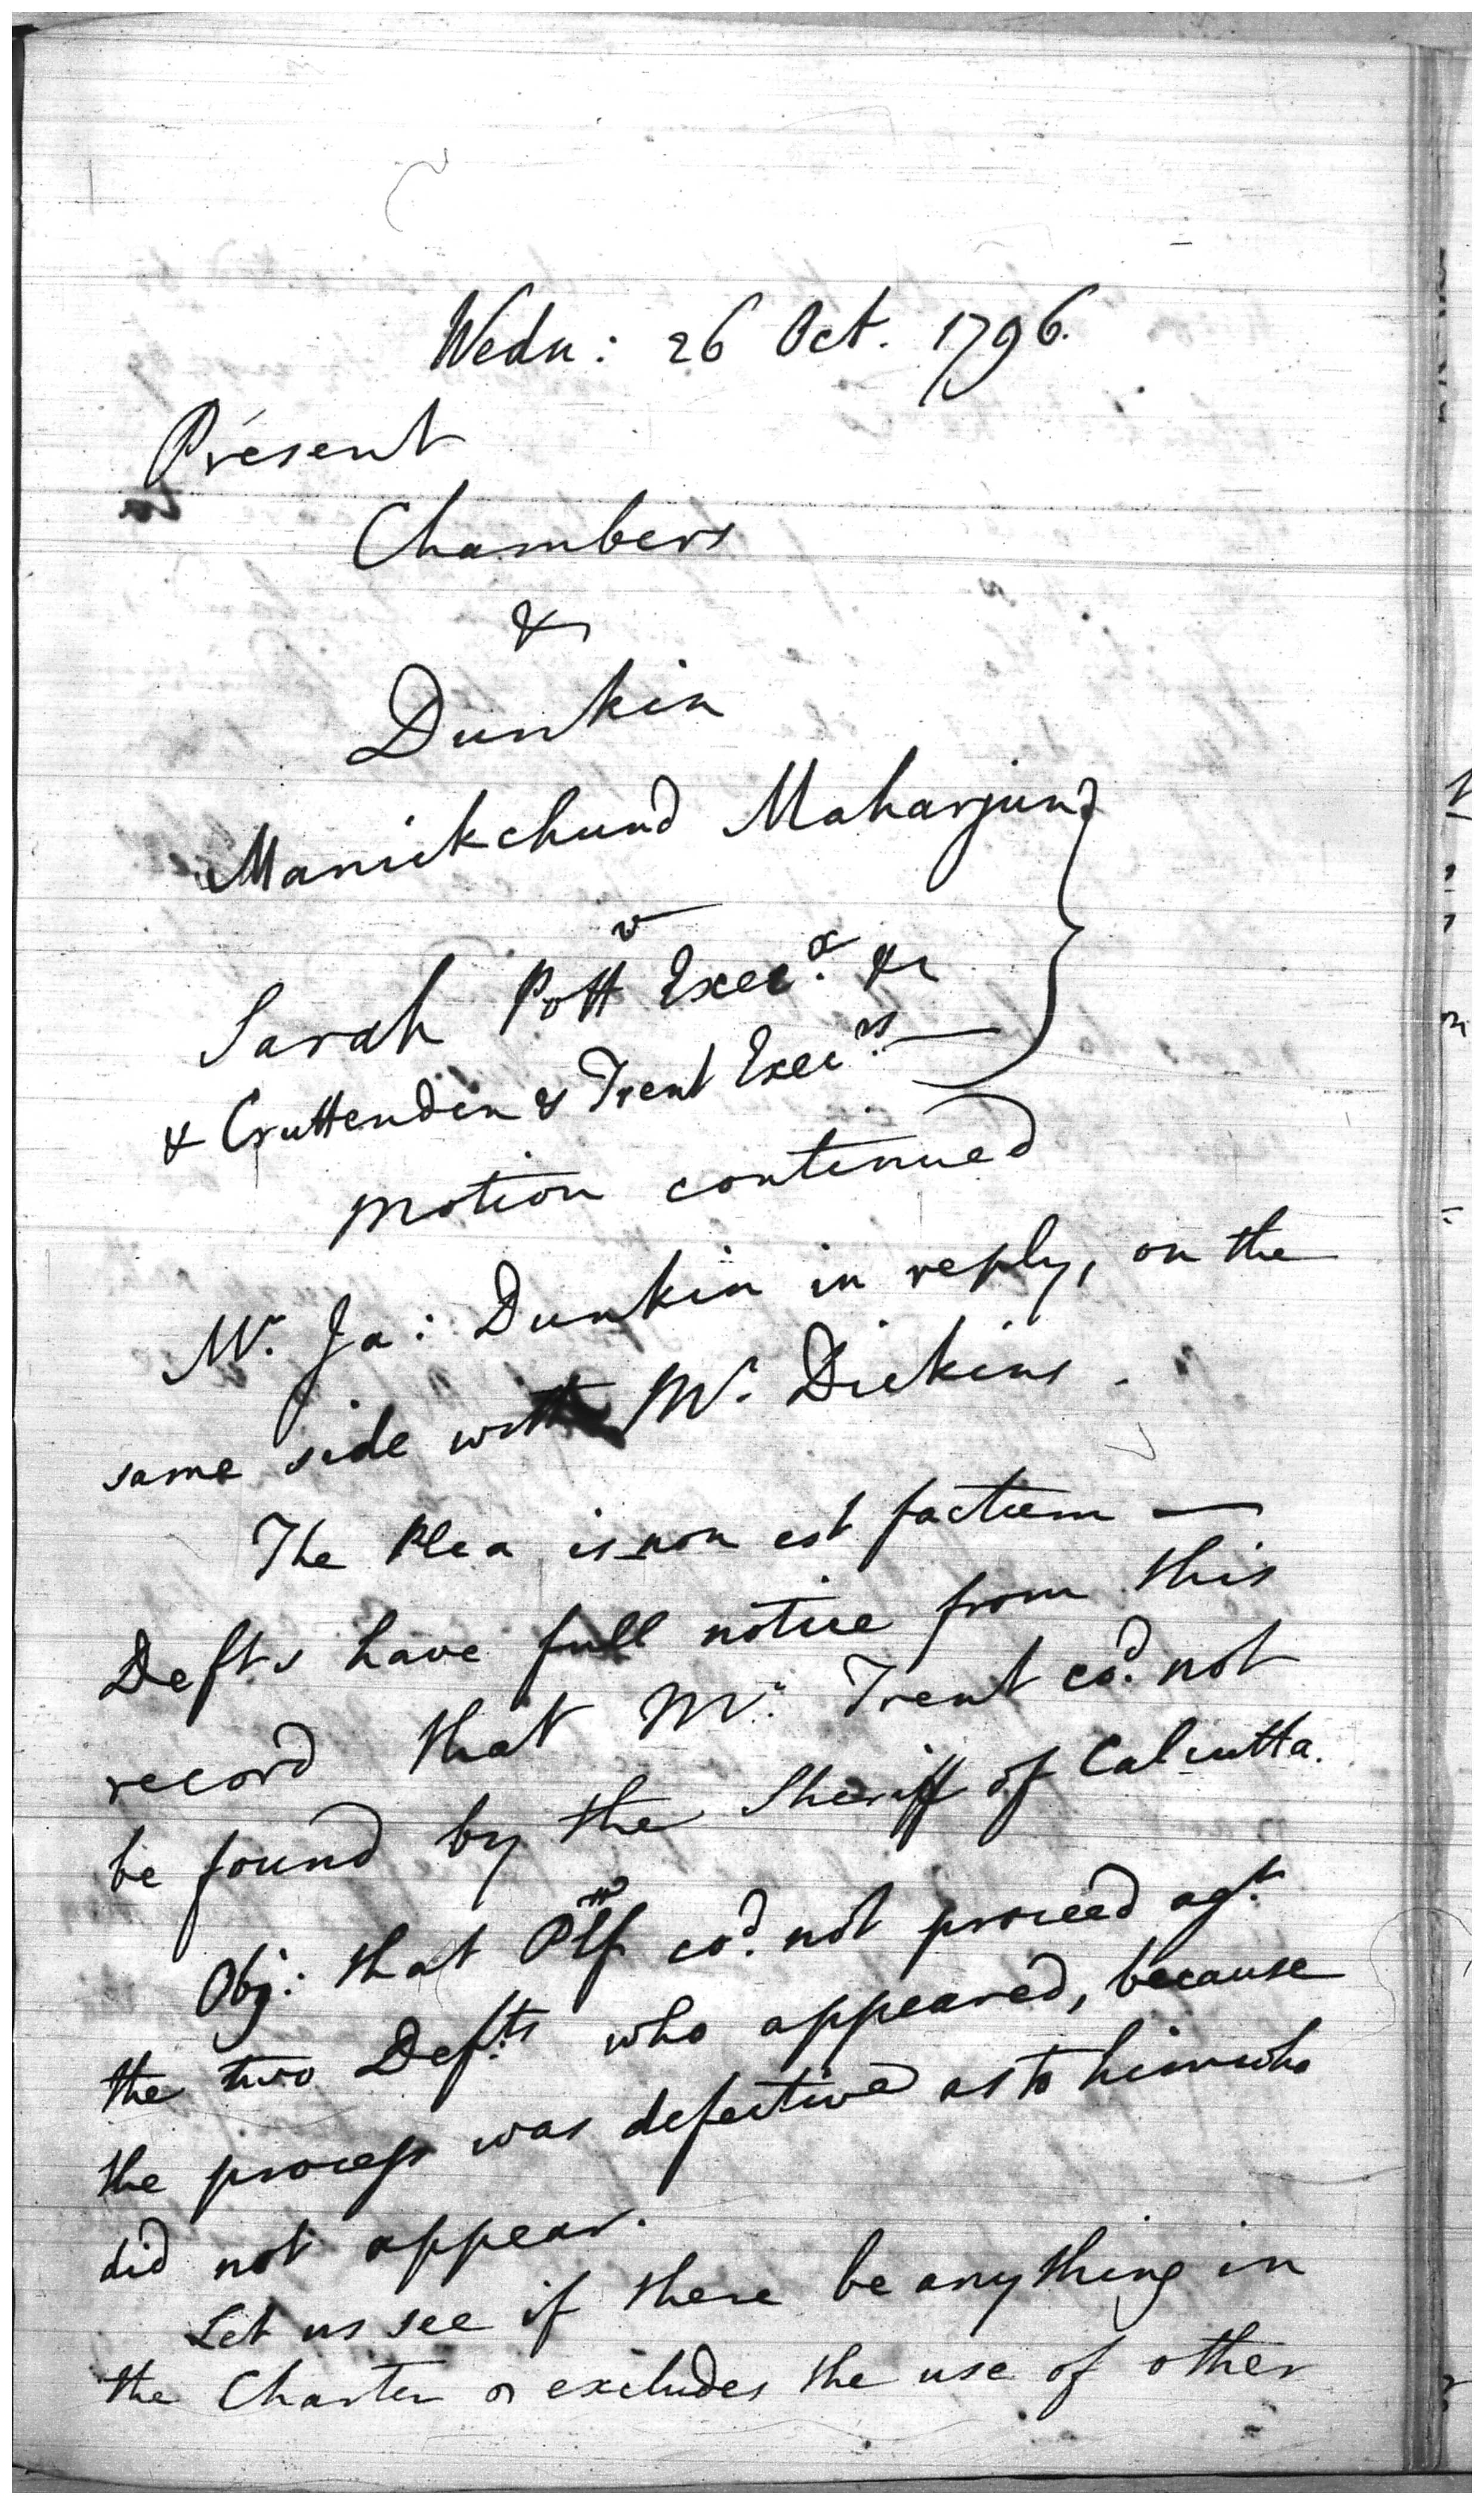 Wedn: 26 Oct. 1796.
Present
Chambers
&
Dunkin
Manickchund Maharjun
v
Sarah Pott Exec.x &
& Cruttenden & Trent Exec.rs
motion continued
Mr. Ja: Dunkin in reply, on the
same side with Mr. Dickins.
The Plea is non est factum —
Defts have full notice from this
record that Mr. Trent cod. not
be found by the Sheriff of Calcutta.
Obj: that Plf cod. not proceed agt.
the two Defts. who appeared, because
the process was defective as to him who
did not appear.
Let us see if there be any thing in
the Charter excludes the use of other